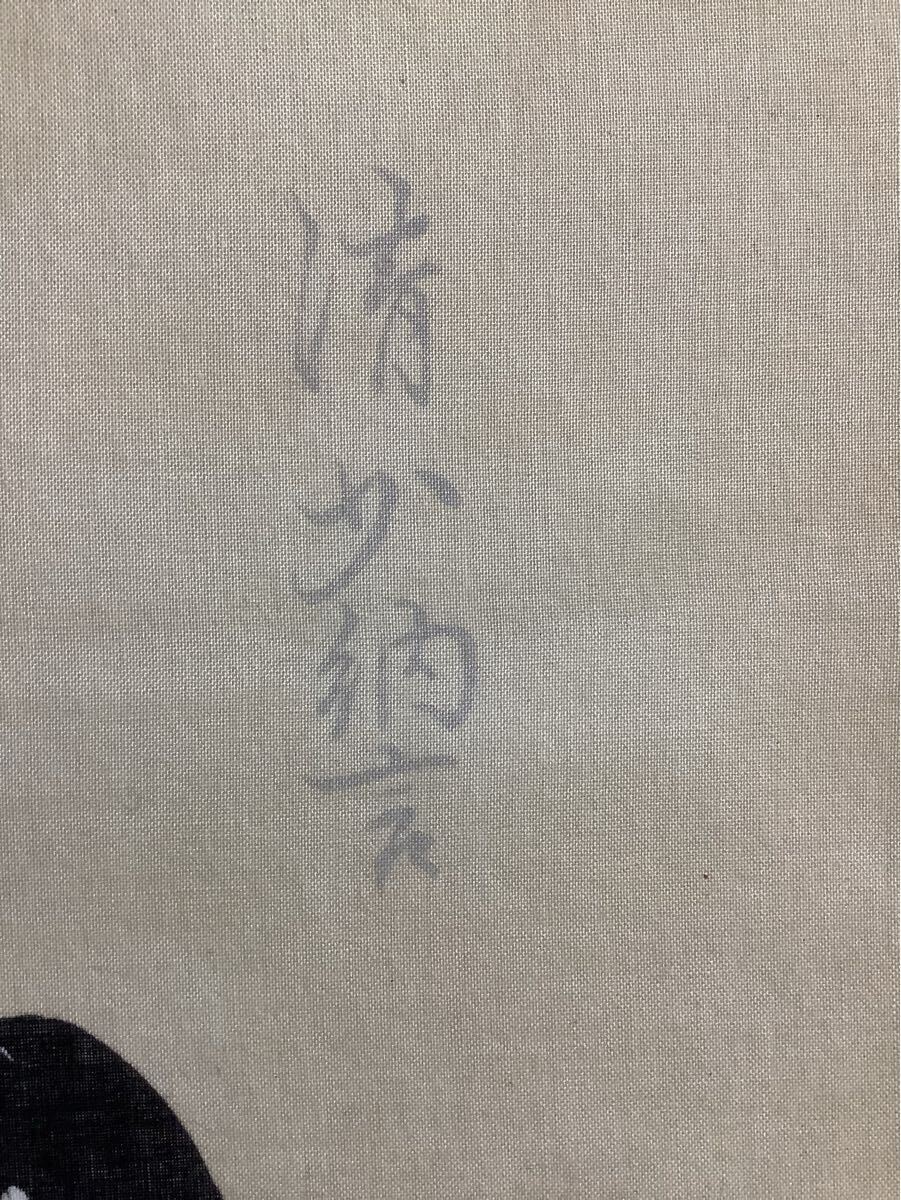 清少納言